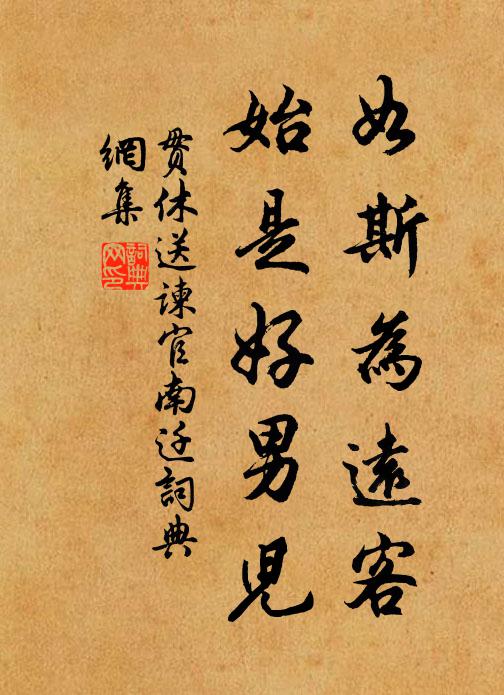 如斯為遠客
始是好男児
貫休送諫官南迁詞典
網集
詞典网印